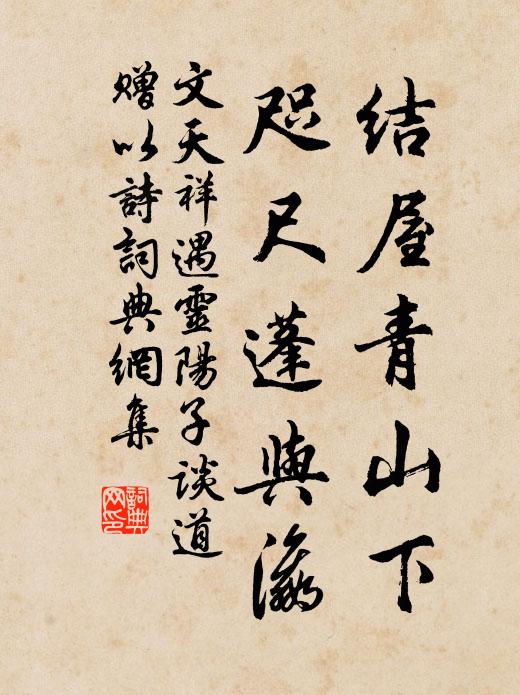 结屋青山下
咫尺蓬與瀛
文天祥遇靈陽子談道
贈以詩詞典網集
詞典网印